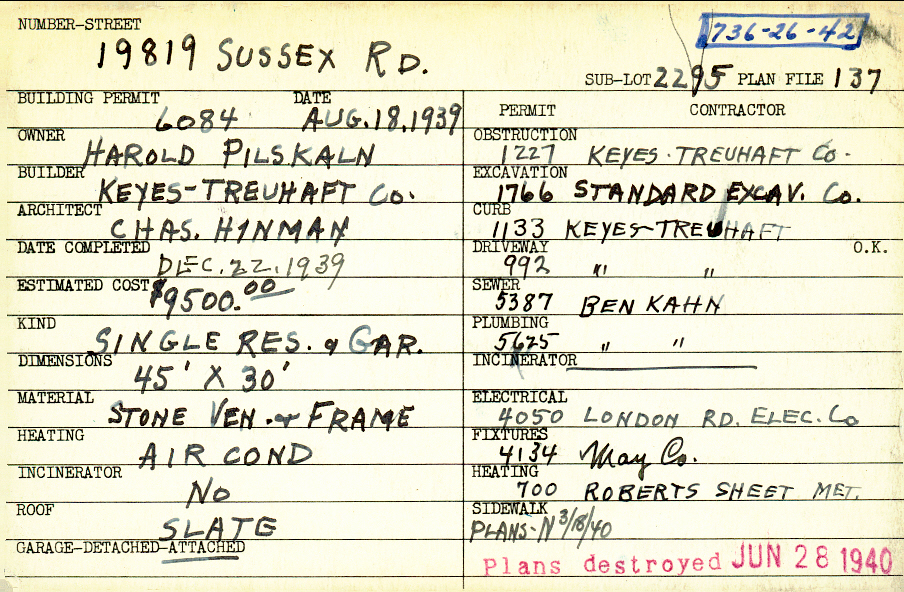 NUMBER-STREET
19819 SUSSEX RD.
736-26-42
SUB-LOT 2295 PLAN FILE 137
BUILDING PERMIT DATE
6084 AUG.18.1939
OWNER
HAROLD PILSKALN
BUILDER
KEYES-TREUHAFT Co.
ARCHITECT
CHAS. HINMAN
DATE COMPLETED
DEC.22.1939
ESTIMATED COST $9500.00
KIND
SINGLE RES. & GAR.
DIMENSIONS
45' X 30'
MATERIAL
STONE VEN. & FRAME
HEATING
AIR COND
INCINERATOR
No
ROOF
SLATE
GARAGE-DETACHED-ATTACHED
PERMIT CONTRACTOR
OBSTRUCTION
1227 KEYES-TREUHAFT Co.
EXCAVATION
1766 STANDARD EXCAV. Co.
CURB
1133 KEYES-TREUHAFT
DRIVEWAY O.K.
992 " "
SEWER
5387 BEN KAHN
PLUMBING
5625 " "
INCINERATOR
ELECTRICAL
4050 LONDON RD. ELEC. Co
FIXTURES
4134 May Co.
HEATING
700 ROBERTS SHEET MET.
SIDEWALK
PLANS-N 3/18/40
Plans destroyed JUN 28 1940